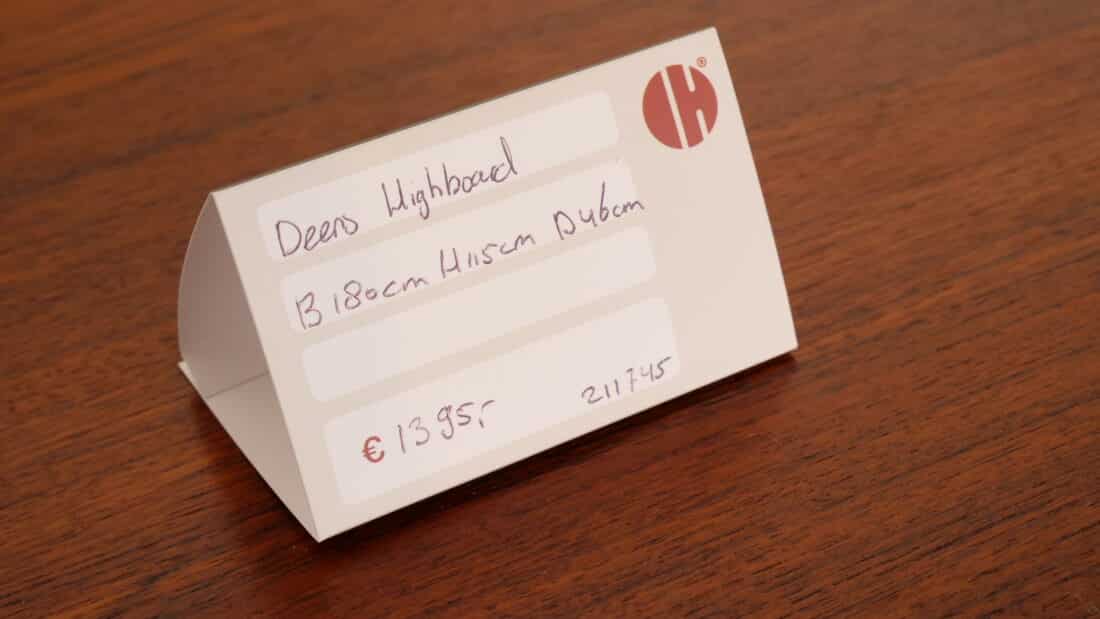 IH®
Deens Highboard
B 180cm H115cm D46cm
€ 1395,- 211745